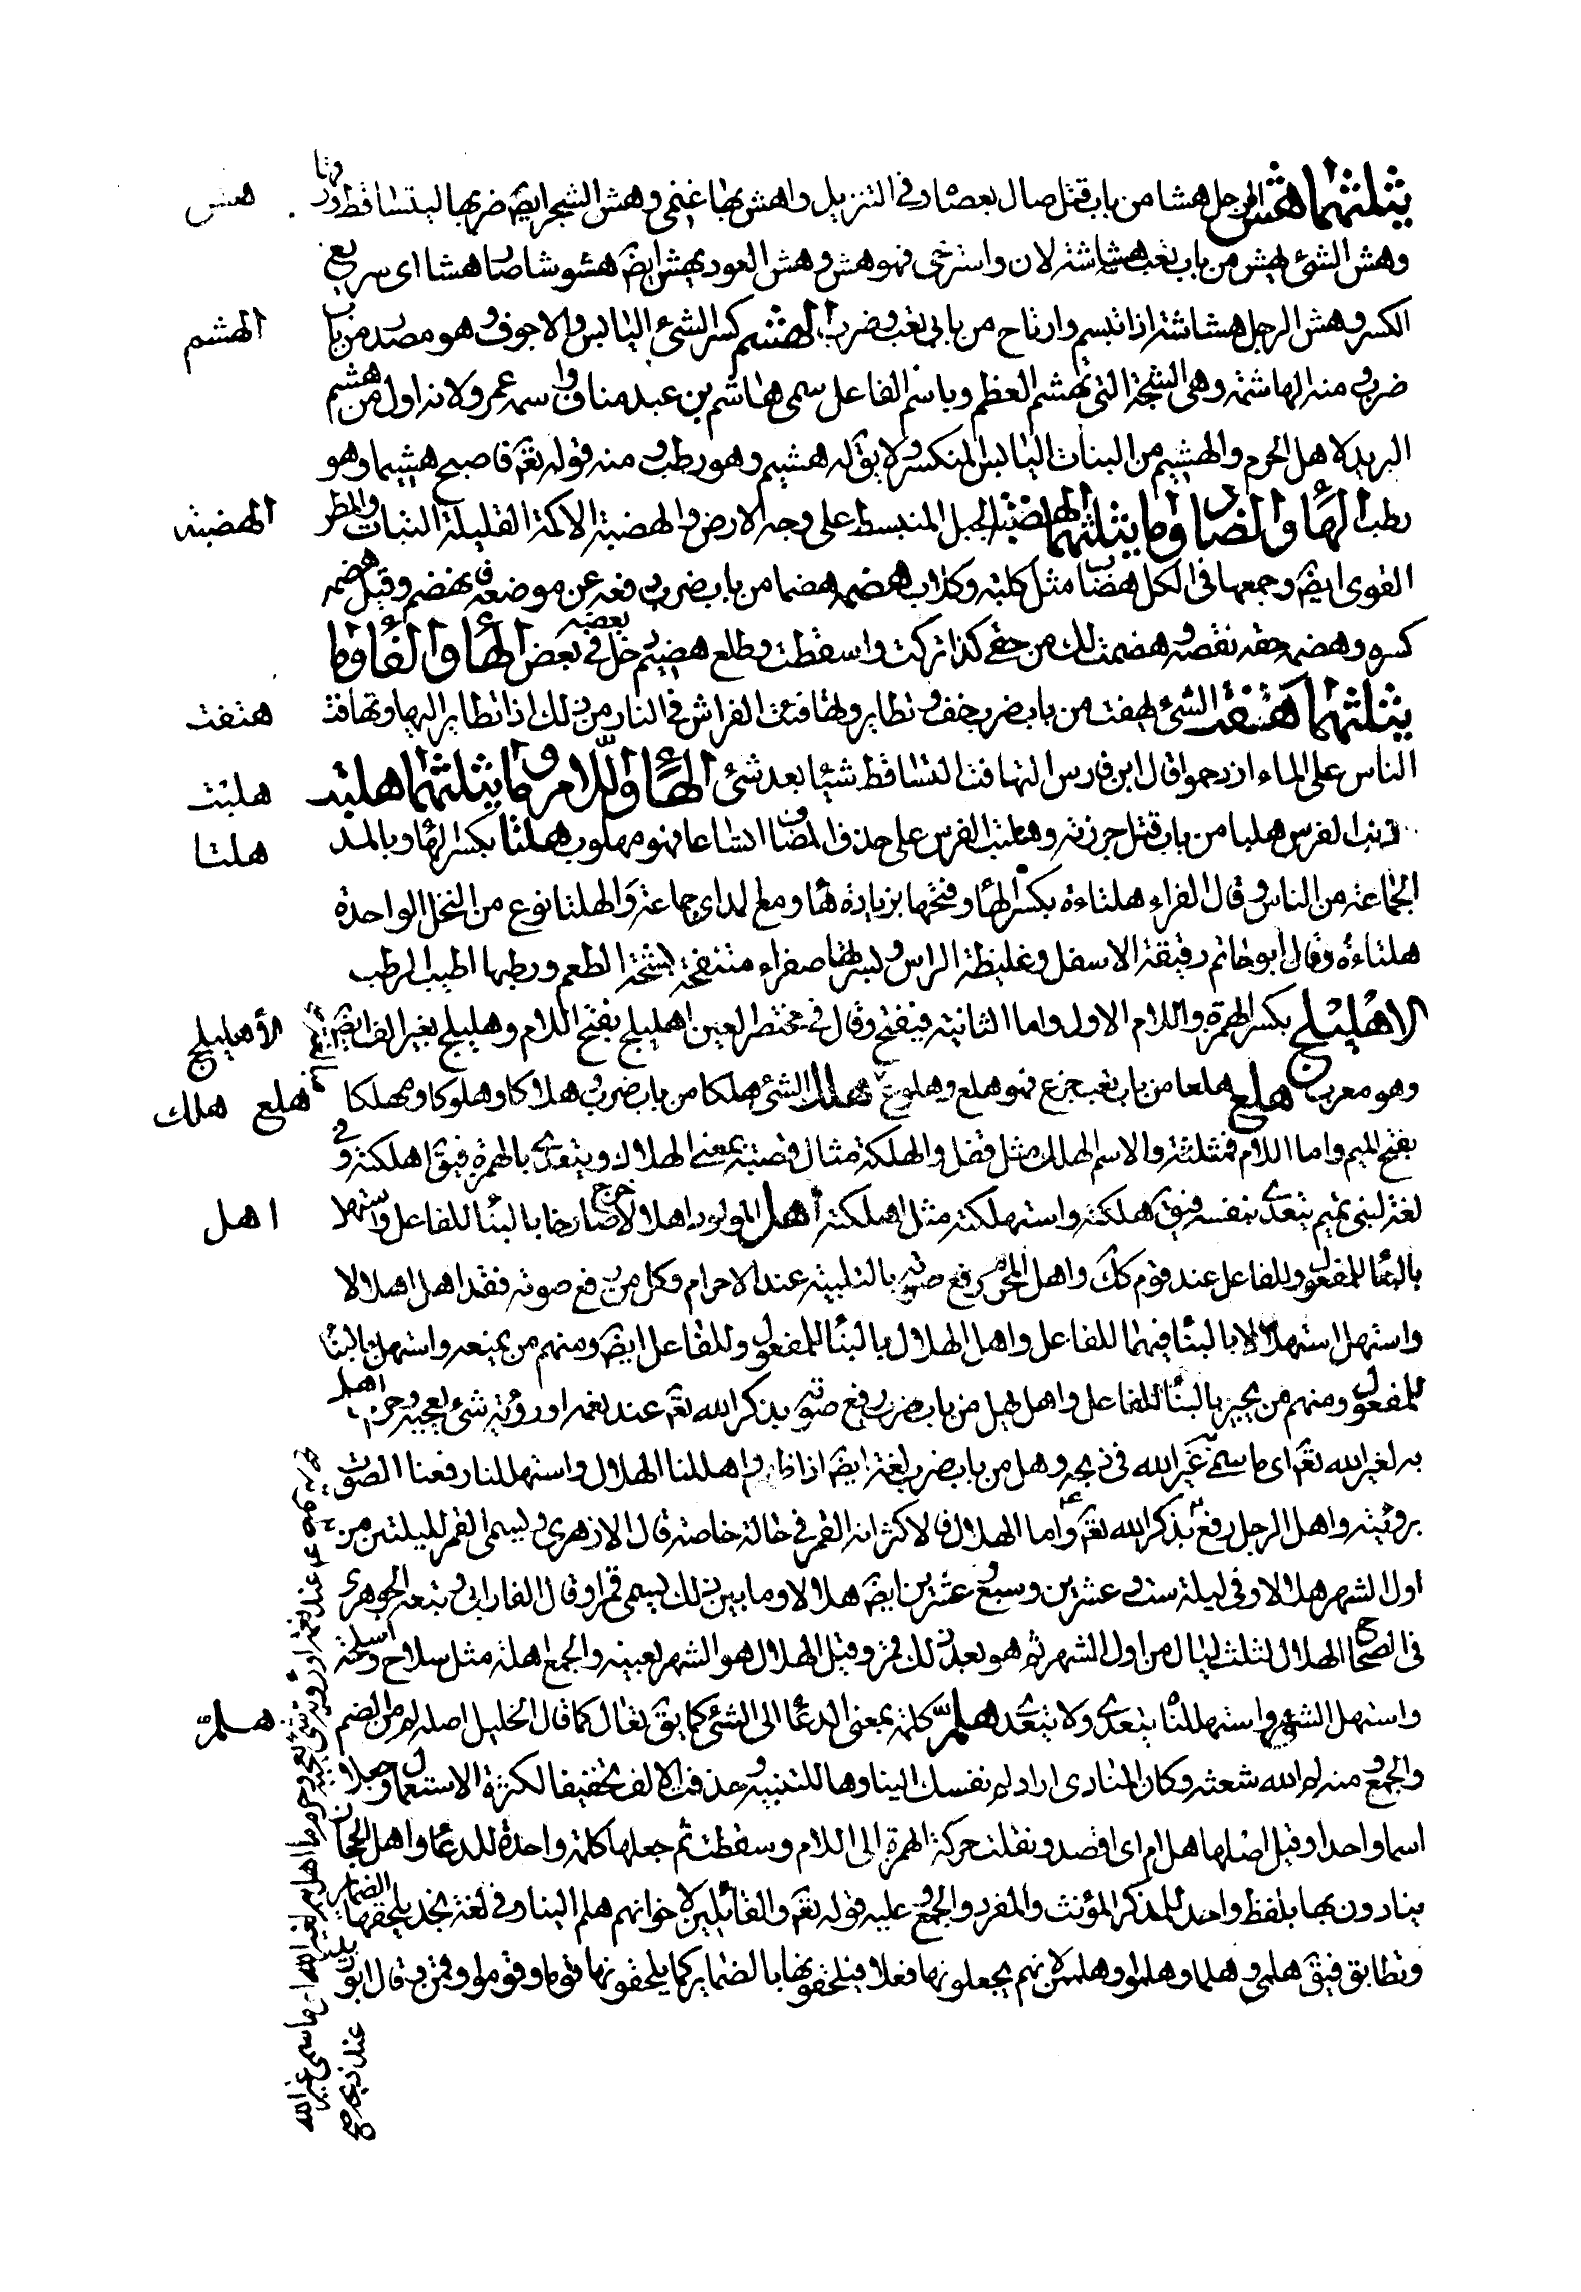 يثلثهما هش الرجل هشا من باب قتل صال بعصاه وفي التنزيل واهش بها على غنمي وهش الشجر ايضا ضربها ليتساقط ورقها
هش
وهش الشئ يهش من باب تعب هشاشة لان واسترخى فهو هش وهش العود يهش ايضا هشوشا صار هشا اى سريع
الكسر وهش الرجل هشاشة اذا تبسم وارتاح من بابي تعب وضرب الهشم كسر الشئ اليابس والاجوف وهو مصدر من باب
الهشم
ضرب ومنه الهاشمة وهي الشجة التي تهشم العظم وباسم الفاعل سمى هاشم بن عبد مناف واسمه عمرو لانه اول من هشم
الثريد لاهل الحرم والهشيم من النبات اليابس المتكسر ولا يقال له هشيم وهو رطب ومنه قوله تعم فاصبح هشيما وهو
رطب الهاء والضاد وما يثلثهما الهضبة الجبل المنبسط على وجه الارض والهضبة الاكمة القليلة النبات والمطر
الهضبة
القوى ايضا وجمعها في الكل هضاب مثل كلبة وكلاب هضمه هضما من باب ضرب دفعه عن موضعه فانهضم وقيل هضمه
كسره وهضمه حقه نقصه وهضمت لك من حقي كذا تركت واسقطت وطلع هضيم دخل بعضه في بعض الهاء والفاء وما
يثلثهما هفت الشئ يهفت من باب ضرب خف وتطاير وتهافت الفراش في النار من ذلك اذا تطاير اليها وتهافت
هفت
الناس على الماء ازدحموا قال ابن فارس التهافت التساقط شيئا بعد شئ الهاء واللام وما يثلثهما هلبت
هلبت
ذنب الفرس هلبا من باب قتل جززته وهلبت الفرس على حذف المضاف اتساعا فهو مهلوب هلثا بكسر الهاء وبالمد
هلثا
الجماعة من الناس وقال الفراء هلثاءة بكسر الهاء وفتحها بزيادة هاء ومع المد اى جماعة والهلثا نوع من النخل الواحدة
هلثاءة وقال ابو حاتم دقيقة الاسفل وغليظة الراس وبسرتها صفراء منتفخة بشعة الطعم ورطبها اطيب الرطب
الاهليلج بكسر الهمزة واللام الاولى واما الثانية فيفتح وقال في مختصر العين اهليلج بفتح اللام وهليلج بغير الف ايضا
الأهليلج
وهو معرب هلع هلعا من باب تعب جزع فهو هلع وهلوع هلك الشئ هلكا من باب ضرب وهلاكا وهلوكا ومهلكا
هلع هلك
بفتح الميم واما اللام فمثلثة والاسم الهلك مثل قفل والهلكة مثال قصبة بمعنى الهلاك ويتعدى بالهمزة فيق اهلكته وفي
لغة لبني تميم يتعدى بنفسه فيق هلكته واستهلكته مثل اهلكته أهل المولود اهلالا خرج صارخا بالبناء للفاعل واستهل
اهل
بالبناء للمفعول وللفاعل عند قوم كك واهل المحرم رفع صوته بالتلبية عند الاحرام وكل من رفع صوته فقد اهل اهلالا
واستهل استهلالا بالبناء فيهما للفاعل واهل الهلال بالبناء للمفعول وللفاعل ايضا ومنهم من يمنعه واستهل بالبناء
للمفعول ومنهم من يجيز بالبناء للفاعل واهل يهل من باب ضرب رفع صوته بذكر الله تعم عند نعمة او رؤية شئ يعجبه وحرم ما اهل
به لغير الله تعم اى ما سمى غير الله في ذبحه وهل من باب ضرب لغة ايضا اذا ظهر واهللنا الهلال واستهللنا رفعنا الصوت
برؤيته واهل الرجل رفع بذكر الله تعم واما الهلال فالاكثر انه القمر في حالة خاصة قال الازهري ويسمى القمر لليلتين من
اول الشهر هلالا وفي ليلة ست وعشرين وسبع وعشرين ايضا هلالا وما بين ذلك يسمى قمرا وقال الفارابي وتبعه الجوهري
في الصحاح الهلال لثلث ليال من اول الشهر ثم هو بعد ذلك قمر وقيل الهلال هو الشهر بعينه والجمع اهلة مثل سلاح واسلحة
واستهل الشهر واستهللناه يتعدى ولا يتعدى هلم كلمة بمعنى الدعاء الى الشئ كما يق تعال كما قال الخليل اصله لم من الضم
هلم
والجمع ومنه لم الله شعثه وكان المنادى اراد لم نفسك الينا وها للتنبيه وحذفت الالف تخفيفا لكثرة الاستعمال وجعلا
اسما واحدا وقيل اصلها هل ام اى اقصد ونقلت حركة الهمزة الى اللام وسقطت ثم جعلها كلمة واحدة للدعاء واهل الحجاز
ينادون بها بلفظ واحد للمذكر المؤنث والمفرد والجمع وعليه قوله تعم والقائلين لاخوانهم هلم الينا وفي لغة نجد يلحقها الضماير
وتطابق فيق هلمي وهلما وهلموا وهلمن لانهم يجعلونها فعلا فيلحقونها بالضماير كما يلحقونها قوما وقوموا وقمن وقال ابو زيد
عند نعمة او رؤية شئ يعجبه وحرم ما اهل به لغير الله اى ما سمى غير الله
عند ذبحه صح